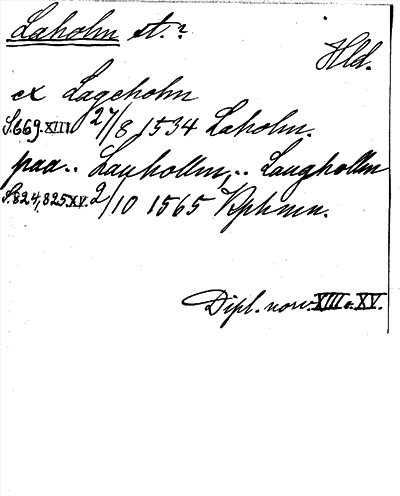 Laholm st.?
Hld.
ex Lageholm
S.669.XIII 27/8 1534 Laholm.
paa.. Lauhollm,.. Laugholllm
S.824,825.XV. 2/10 1565 Kphmn.
Dipl. norv. XIII o. XV.